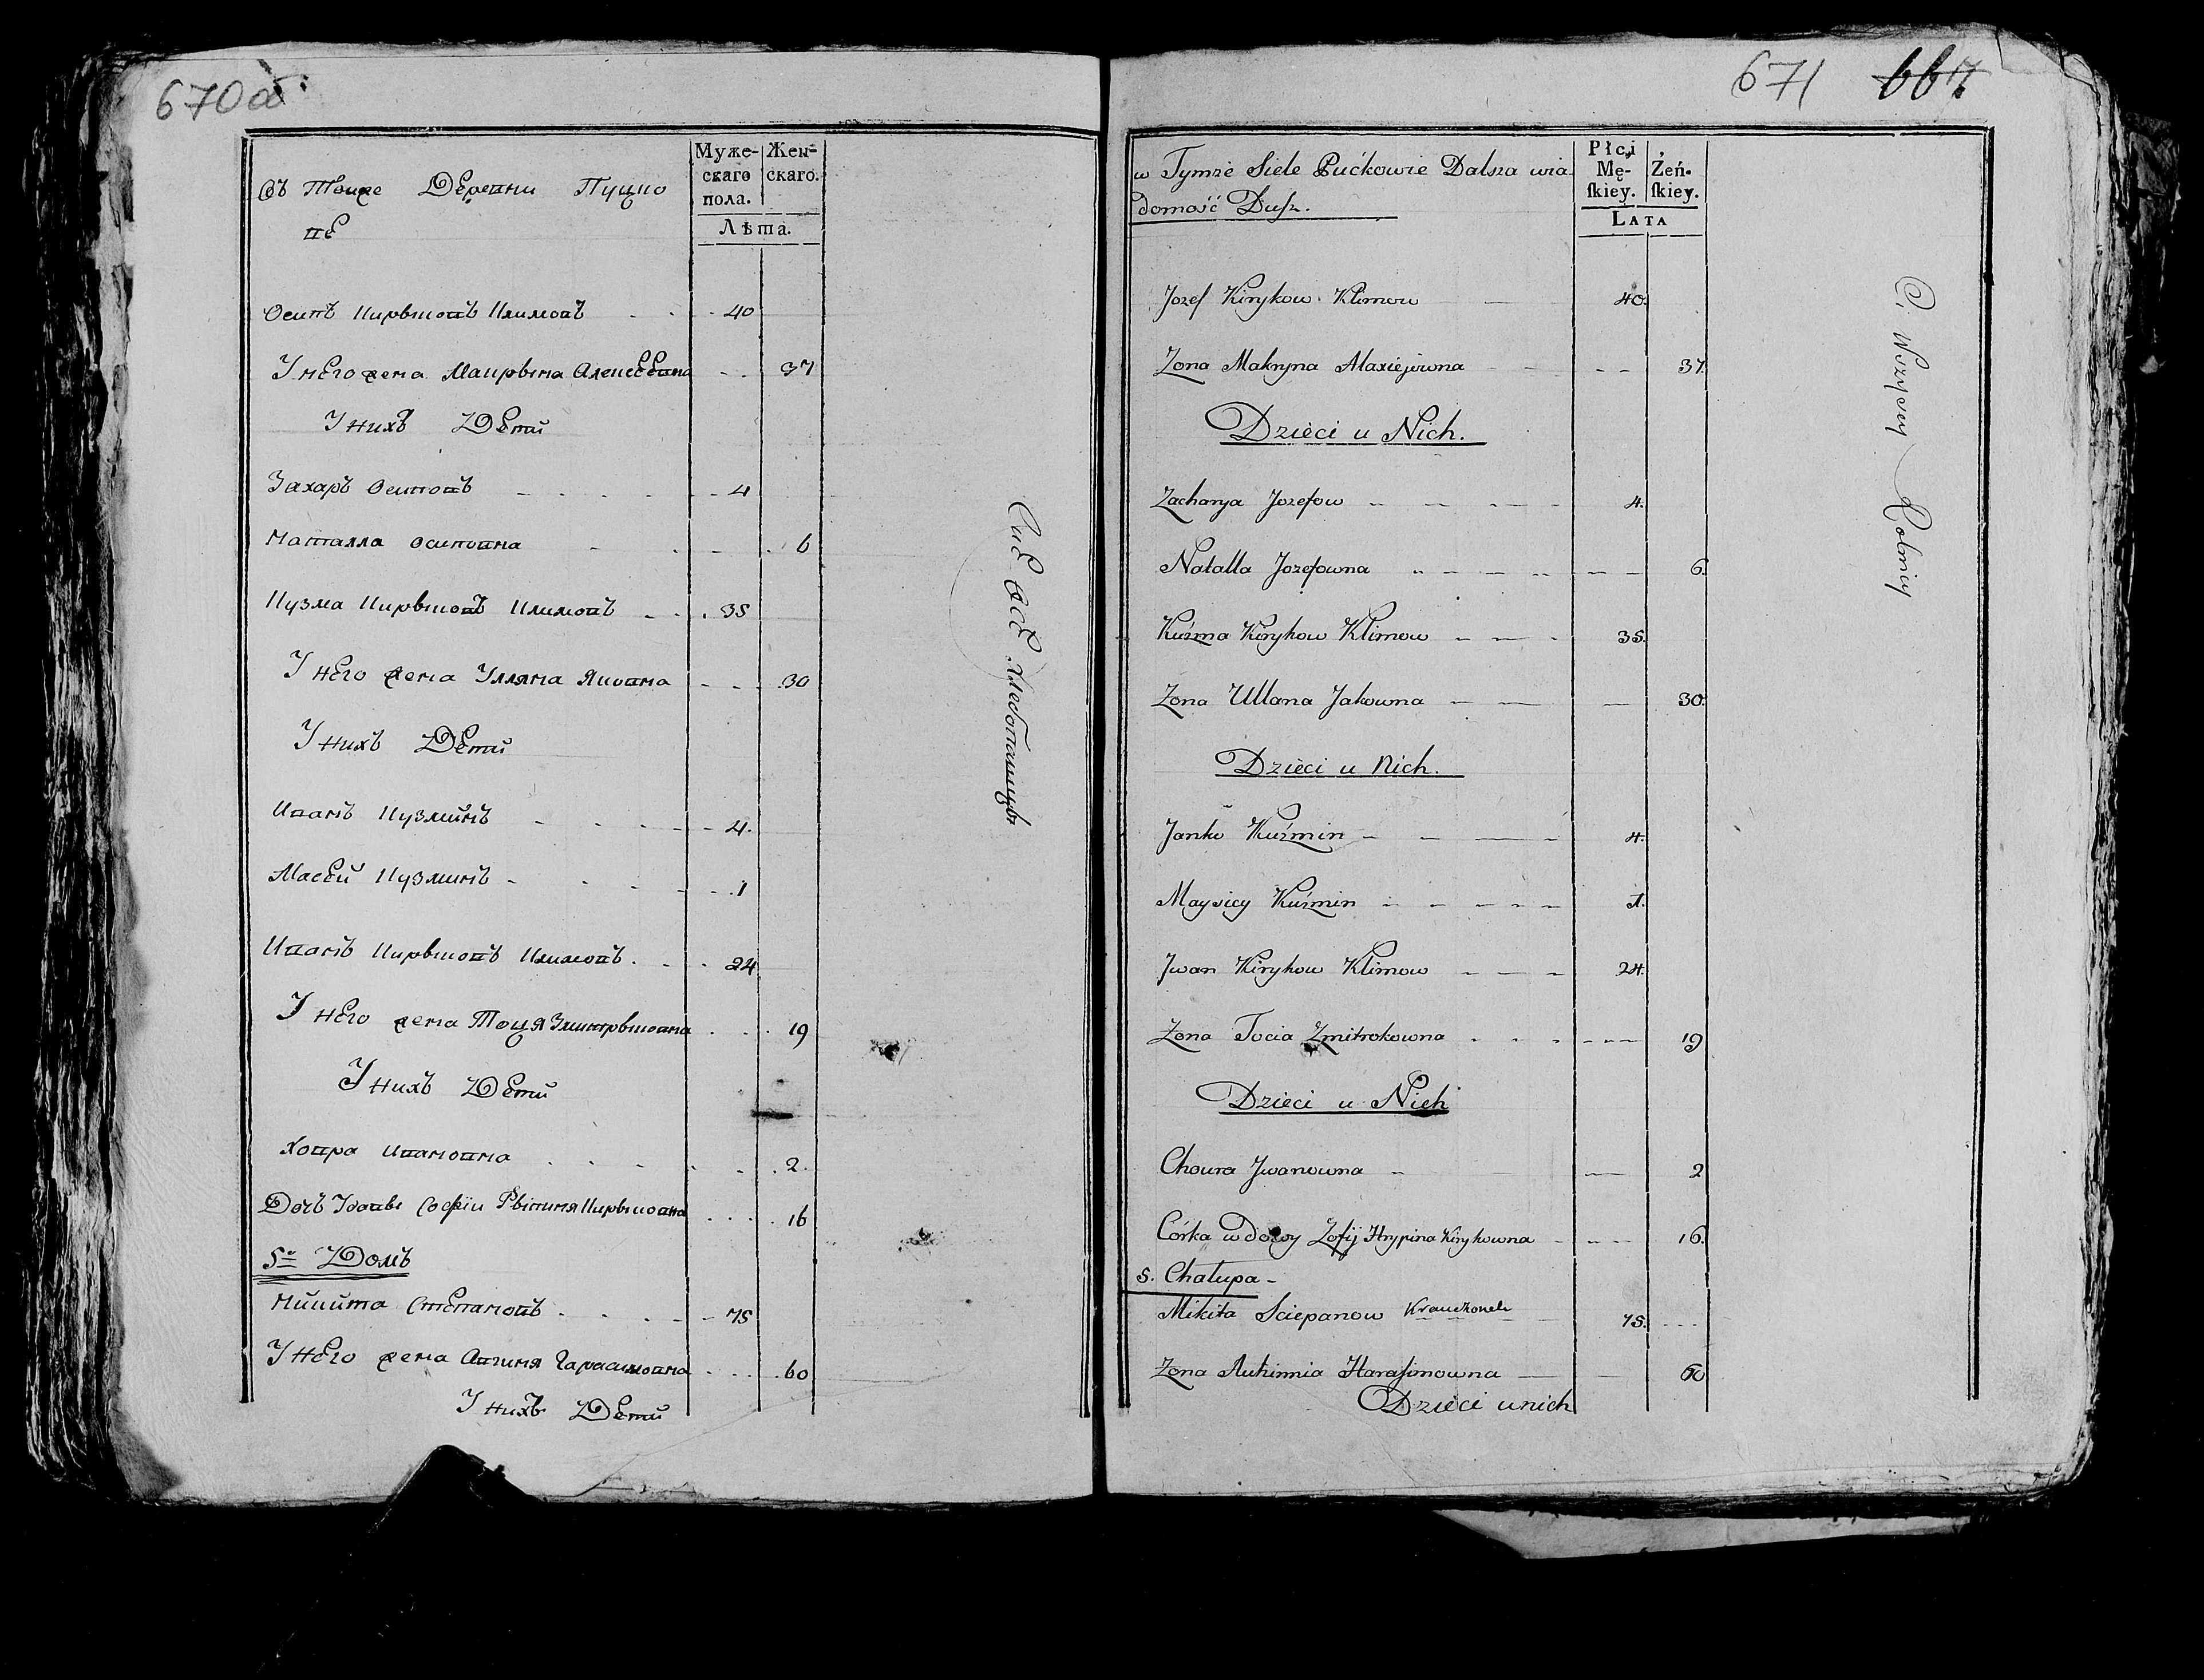 670об.
Въ Тойже Деревни Пуцко
ве
Муже-
скаго
пола.
Жен-
скаго.
Лѣта.
Осипъ Кирыковъ Климовъ 40
У него жена Макрына Алексеевна 37
У нихъ Дети
Захаръ Осиповъ 4
Наталла Осиповна 6
Кузма Кирыковъ Климовъ 35
У него жена Улляна Яковна 30
У нихъ Дети
Иванъ Кузминъ 4.
Масей Кузминъ 1
Иванъ Кирыковъ Климовъ 24
У него жена Тоця Змитрыковна 19
У нихъ Дети
Ховра Ивановна 2.
Дочъ Удовы Софіи Кирыковна 16
5º Домъ
Микита Степановъ 75
У него жена Авгиня Гарасимовна 60
У нихъ Дети
Сие все хлебопашцы
671 667
w Tymże Siele Pućkowie Dalsza wia
domość Dusz.
Płci
Mę-
skiey.
Żeń-
skiey.
LATA
Jozef Kirykow Klimow 40.
Zona Makryna Alaxiejowna 37.
Dzieci u Nich.
Zacharya Jozefow 4.
Natalla Jozefowna 6.
Kuźma Kirykow Klimow 35.
Zona Ullana Jakowna 30.
Dzieci u Nich.
Janko Kuźmin 4.
Maysiey Kuźmin 1.
Jwan Kirykow Klimow 24.
Zona Tocia Zmitrokowna 19
Dzieci u Nich
Choura Jwanowna 2
Córka wdowy Zofij Hrypina Kirykowna 16.
5. Chałupa
Mikita Sciepanow 75.
Zona Auhinnia Harasimowna 60
Dzieci u nich
Ci Wszyscy Rolnicy